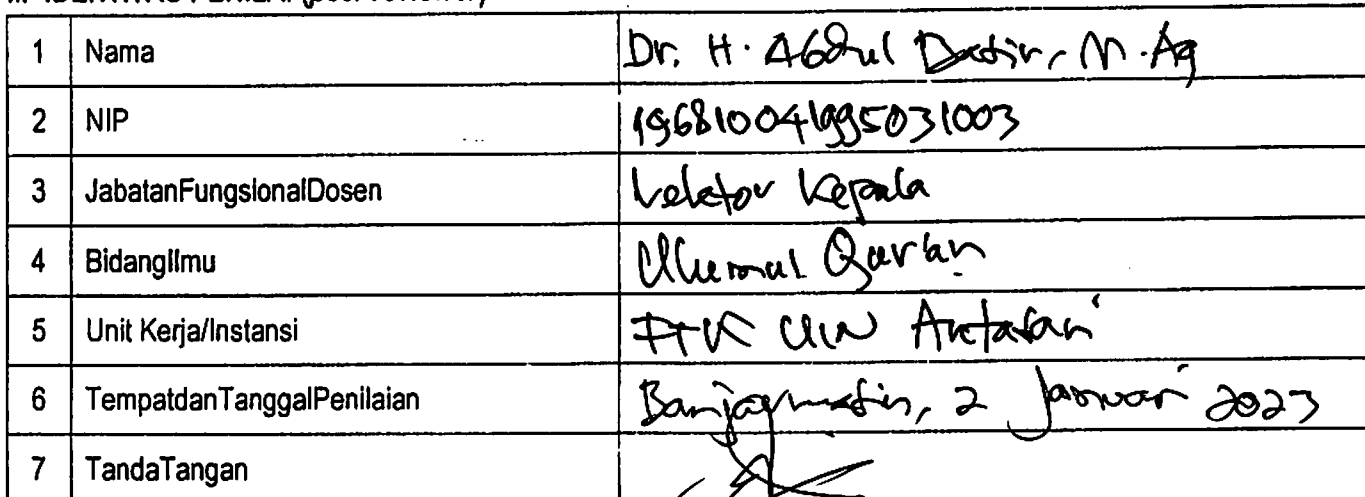 1 Nama Dr. H. Abdul Basir, M.Ag
2 NIP 196810041995031003
3 JabatanFungsionalDosen Lektor Kepala
4 BidangIlmu Ulumul Qur'an
5 Unit Kerja/Instansi FTK UIN Antasari
6 TempatdanTanggalPenilaian Banjarmasin, 2 Januari 2023
7 TandaTangan